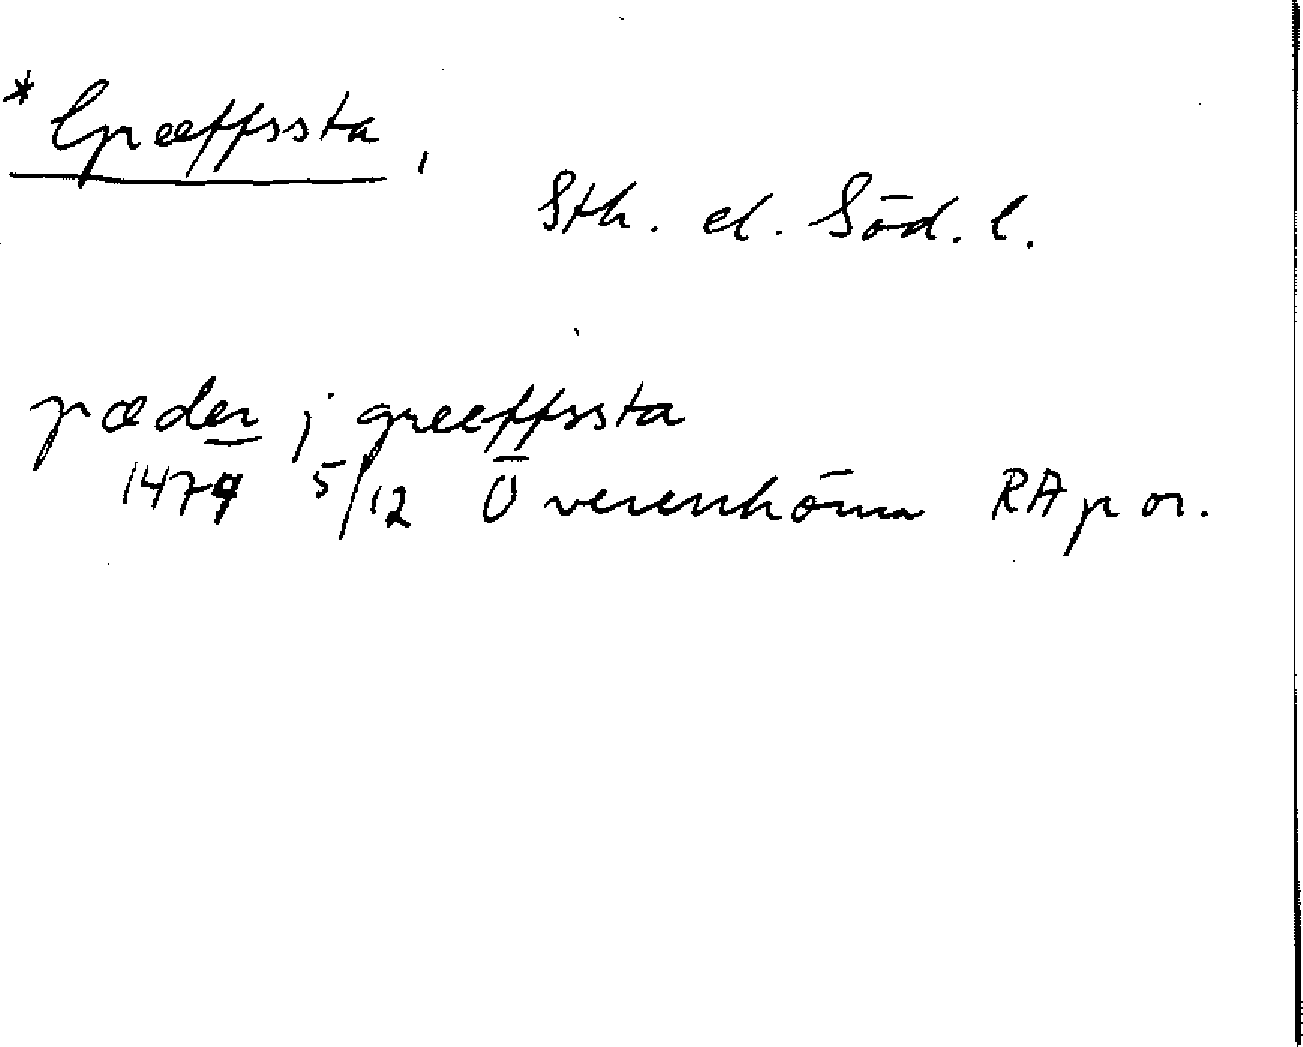 * Greeffssta,
Sth. el. Söd. l.
pæder j greeffssta
1479 5/12 Överenhörna RAp or.